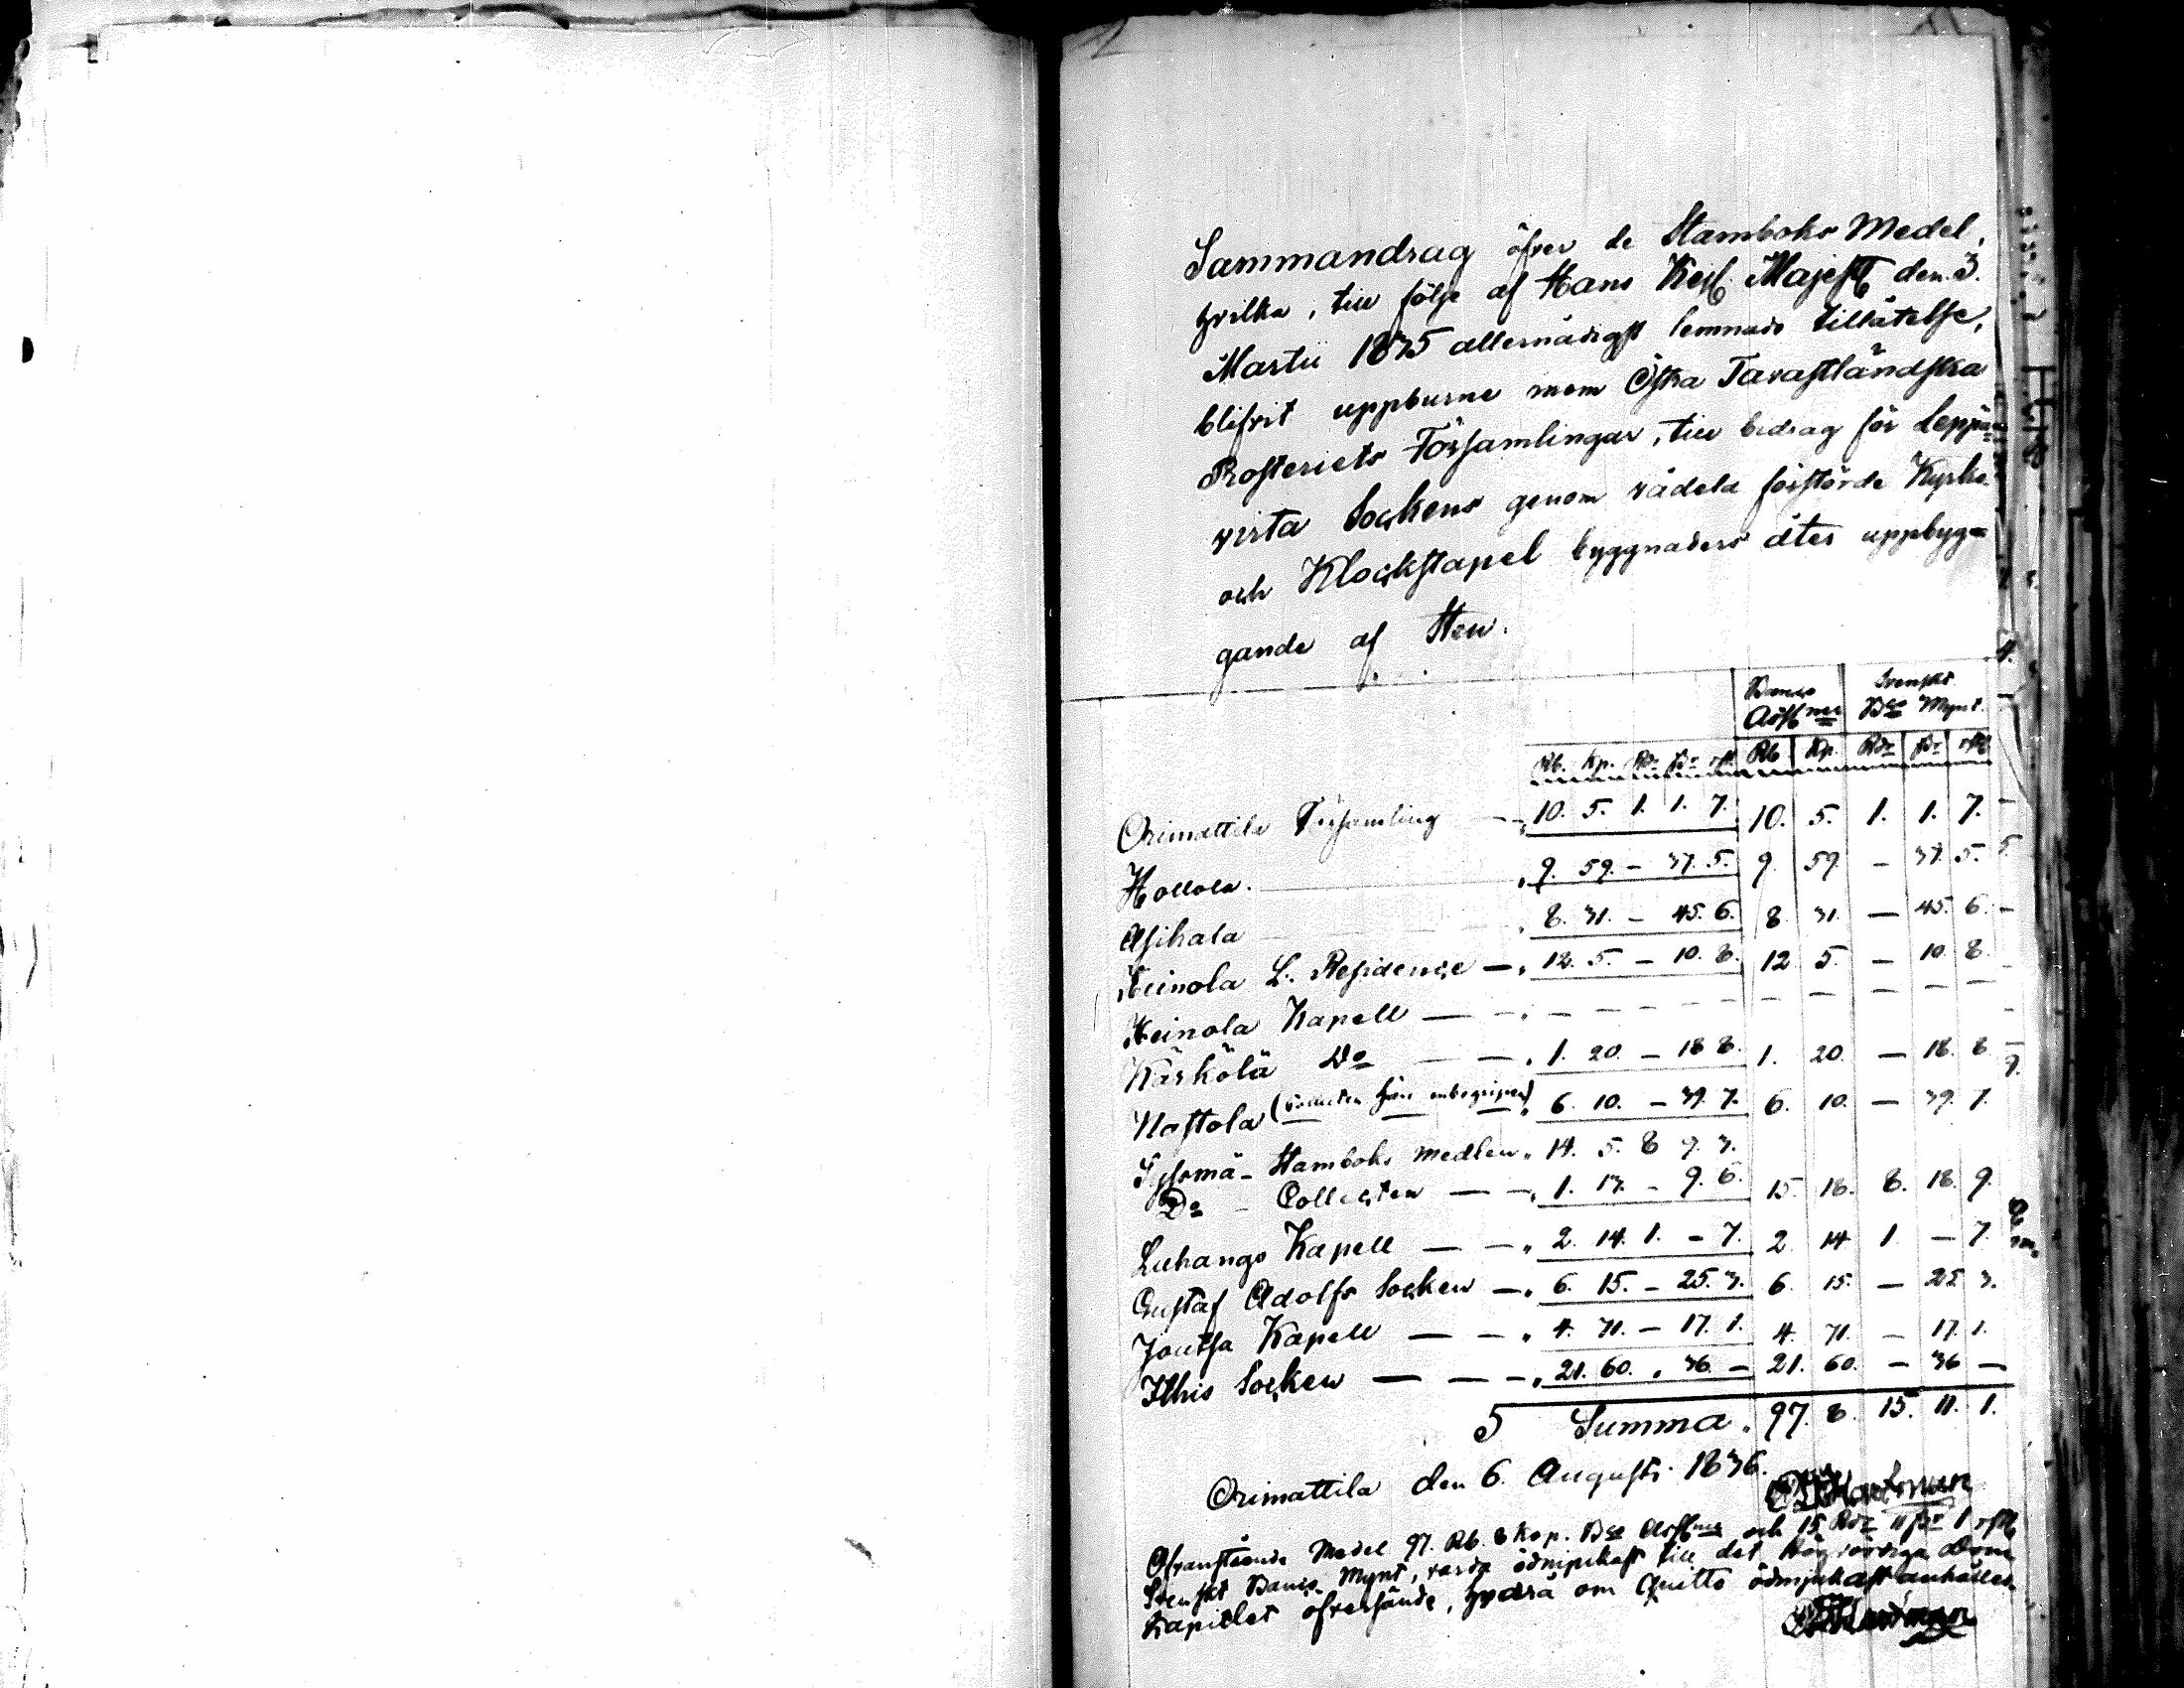 Sammandrag öfver de Stamboks Medel,
hvilka, till följe af Hans Kejs. Majestts den 3.
Martii 1835 allernådigst lemnade tillåtelse,
blifvit uppburne inom Östra Tavastländska
Prosteriets Församlingar, till bidrag för Leppä=
virta Sockens genom vådeld förstörde Kyrko
och Klockstapel byggnaders åter uppbyg=
gande af Sten.
Banco Assg.ner Svenskt Bco Mynt.
Rb. Kp. Rdr ßr rst. Rb Kp. Rdr ßr rst
Orimattila Församling — 10. 5. 1. 1. 7. 10. 5. 1. 1. 7.
Hollola. — 9. 59. - 37. 5. 9. 59 - 37. 5.
Asikala — 8. 31. - 45. 6. 8. 31. — 45. 6.
Heinola L. Residence — 12. 5. - 10. 8. 12. 5. - 10. 8.
Heinola Kapell — - - - - - - - - - -
Kärkölä Do — 1. 20. - 18 8. 1. 20. — 18. 8
Nastola (Collecten häri inbegripen) 6. 10. - 39. 7. 6. 10. — 39. 7.
Sysmä - Stamboks medlen 14. 5. 8 9. 3.
Do - Collecten — 1. 13. - 9. 6. 15. 18. 8. 18. 9.
Luhango Kapell — 2. 14. 1. - 7. 2 14 1. — 7.
Gustaf Adolfs Socken — 6. 15. - 25. 3. 6. 15. — 25 3.
Joutsa Kapell — 4. 71. - 17. 1. 4. 71. - 17. 1.
Ithis Socken — 21. 60. " 36. - 21. 60. - 36 —
5 Summa. 97. 8. 15. 11. 1.
Orimattila den 6. Augusti 1836.
Ofvanstående Medel 97. Rb. 8 Kop. Bco Assg.ner och 15 Rdr 11 ßr 1 rst
Svenskt Banco Mynt, varda ödmjukast till det Högvördiga Dom
Kapitlet öfversände, hvarå om Quitto ödmjukast anhålles.